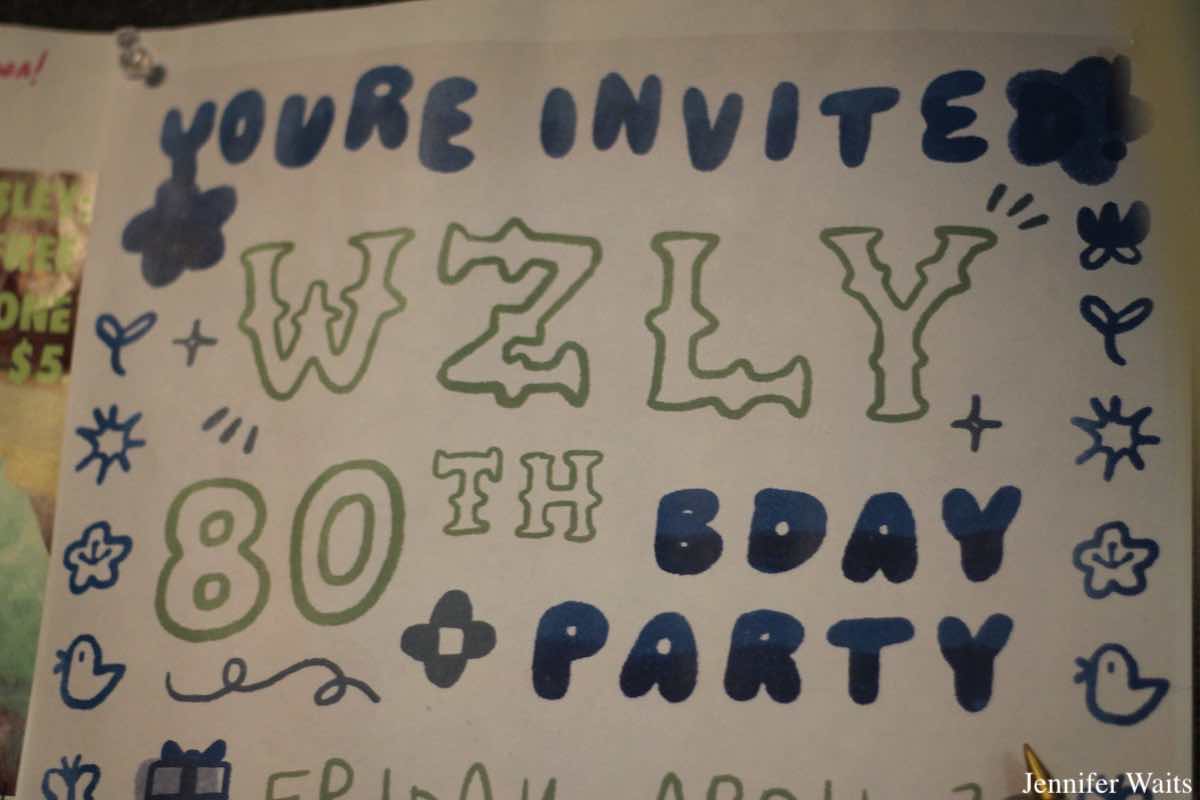 YOURE INVITED
WZLY
80TH BDAY
PARTY
FRIDAY APRIL
SLEY
FREE
ONE
$5
Jennifer Waits